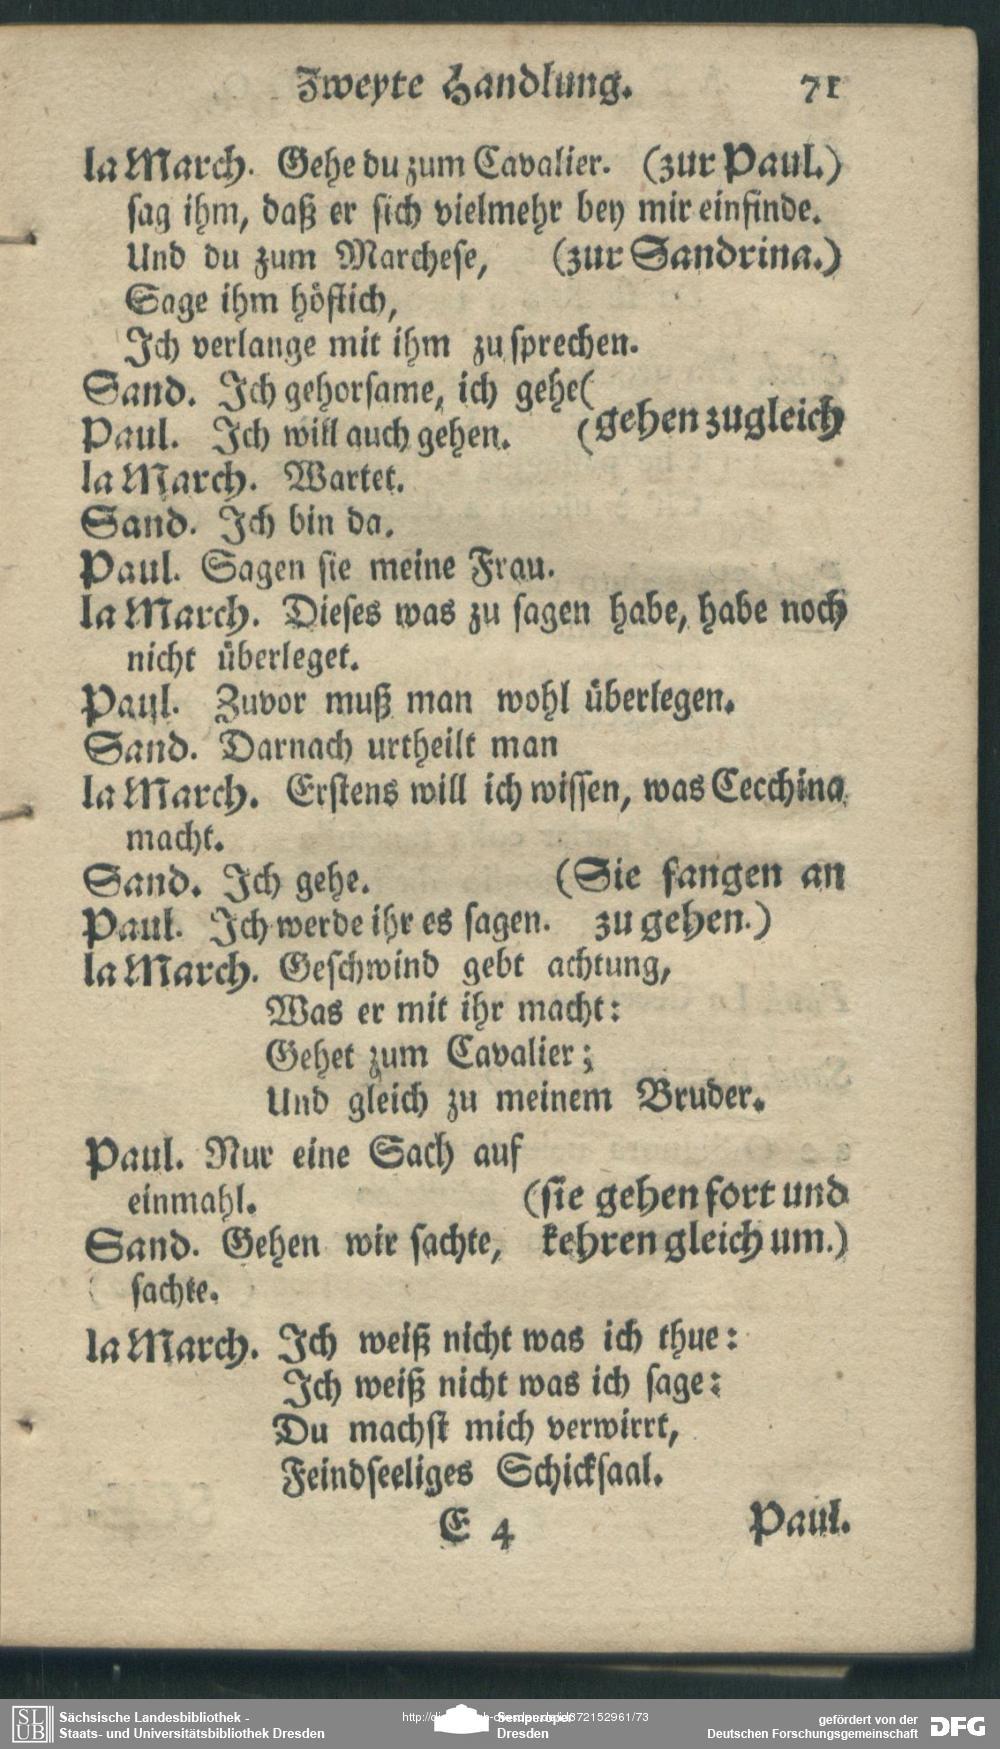 Zweyte Handlung. 71
la March. Gehe du zum Cavalier. (zur Paul.)
sag ihm, daß er sich vielmehr bey mir einfinde.
Und du zum Marchese, (zur Sandrina.)
Sage ihm höflich,
Ich verlange mit ihm zu sprechen.
Sand. Ich gehorsame, ich gehe(
Paul. Ich will auch gehen. (gehen zugleich
la March. Wartet.
Sand. Ich bin da.
Paul. Sagen sie meine Frau.
la March. Dieses was zu sagen habe, habe noch
nicht überleget.
Paul. Zuvor muß man wohl überlegen.
Sand. Darnach urtheilt man
la March. Erstens will ich wissen, was Cecchina
macht.
Sand. Ich gehe. (Sie fangen an
Paul. Ich werde ihr es sagen. zu gehen.)
la March. Geschwind gebt achtung,
Was er mit ihr macht:
Gehet zum Cavalier;
Und gleich zu meinem Bruder.
Paul. Nur eine Sach auf
einmahl. (sie gehen fort und
Sand. Gehen wir sachte, kehren gleich um.)
sachte.
la March. Ich weiß nicht was ich thue:
Ich weiß nicht was ich sage:
Du machst mich verwirrt,
Feindseeliges Schicksaal.
E 4 Paul.
Sächsische Landesbibliothek -
Staats- und Universitätsbibliothek Dresden
Semperoper
Dresden
gefördert von der
Deutschen Forschungsgemeinschaft
DFG
SLUB